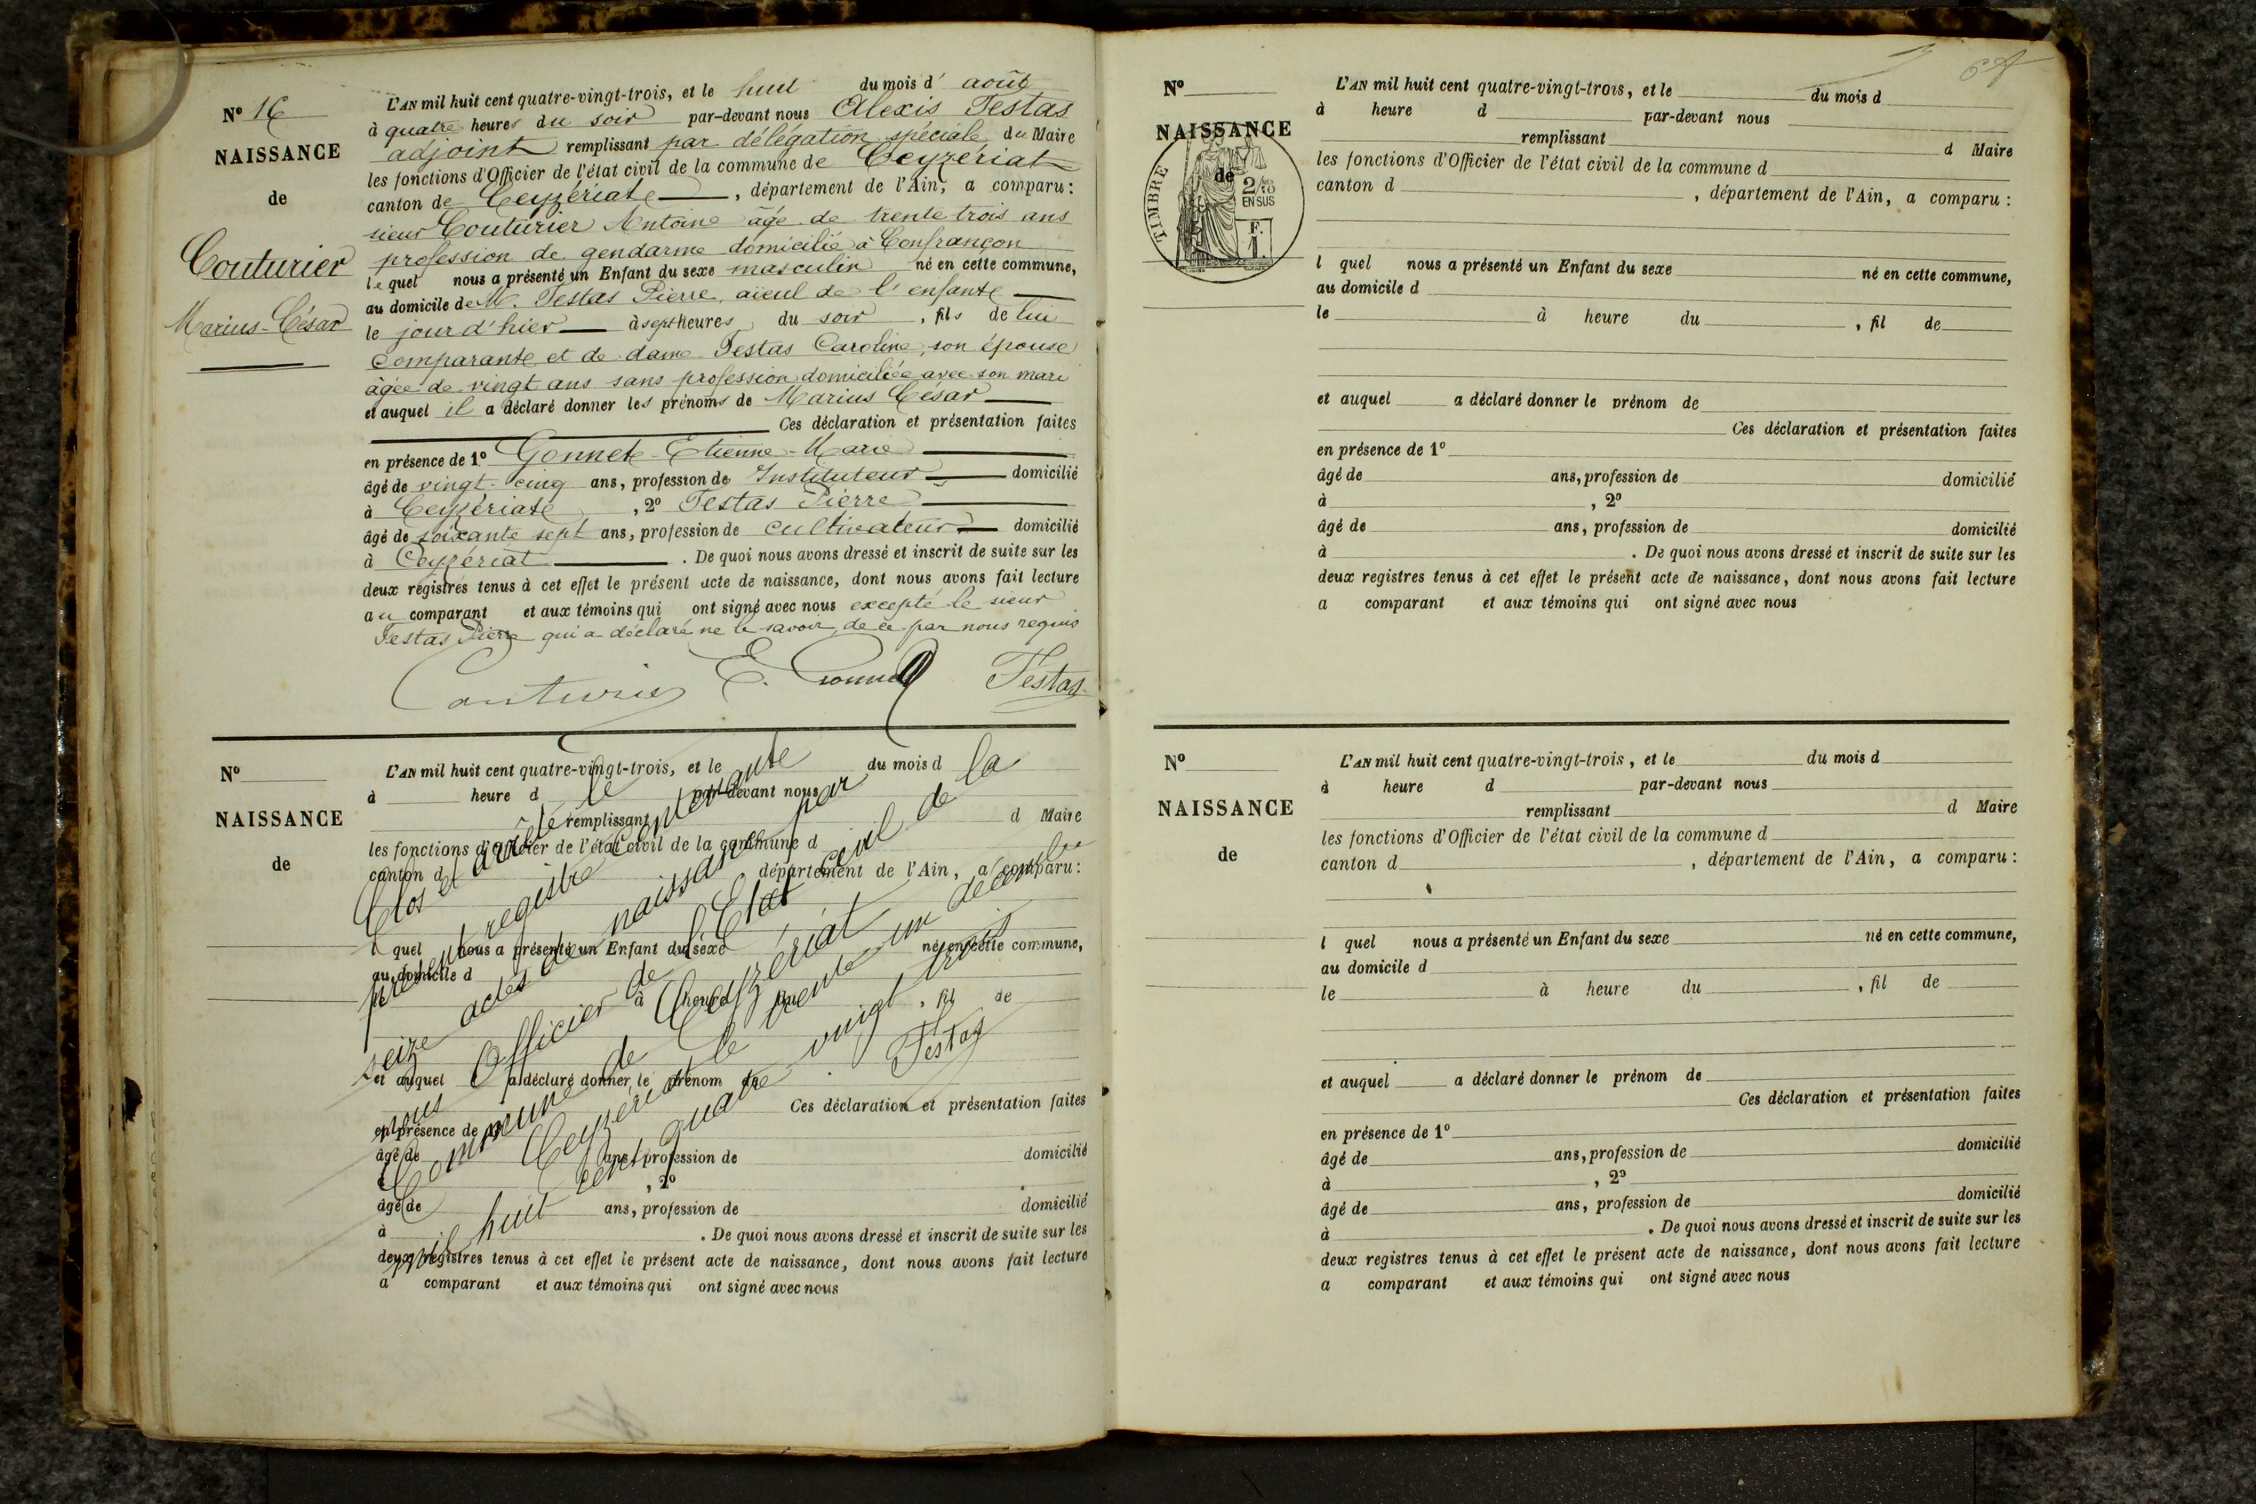 N° 16
NAISSANCE
de
Couturier
Marius-César
L'AN mil huit cent quatre-vingt-trois, et le huit du mois d' août
à quatre heures du soir par-devant nous Alexis Testas
adjoint remplissant par délégation spéciale du Maire
les fonctions d'Officier de l'état civil de la commune de Ceyzériat
canton de Ceyzériat, département de l'Ain, a comparu :
sieur Couturier Antoine âgé de trente trois ans
profession de gendarme domicilié à Confrançon
le quel nous a présenté un Enfant du sexe masculin né en cette commune,
au domicile de M. Testas Pierre, aïeul de l'enfant
le jour d'hier à sept heures du soir, fils de lui
comparant et de dame Testas Caroline, son épouse
âgée de vingt ans sans profession domiciliée avec son mari
et auquel il a déclaré donner les prénoms de Marius César
Ces déclaration et présentation faites
en présence de 1° Gonnet Etienne-Marie
âgé de vingt-cinq ans, profession de Instituteur domicilié
à Ceyzériat, 2° Testas Pierre
âgé de soixante sept ans, profession de cultivateur domicilié
à Ceyzériat. De quoi nous avons dressé et inscrit de suite sur les
deux registres tenus à cet effet le présent acte de naissance, dont nous avons fait lecture
au comparant et aux témoins qui ont signé avec nous excepté le sieur
Testas Pierre qui a déclaré ne le savoir, de ce par nous requis
Couturier E. Gonnet Testas
N°
NAISSANCE
de
L'AN mil huit cent quatre-vingt-trois, et le du mois d
à heure d par-devant nous
remplissant d Maire
les fonctions d'Officier de l'état civil de la commune d
canton d département de l'Ain, a comparu :
l quel nous a présenté un Enfant du sexe né en cette commune,
au domicile d
à heure du, fil de
et auquel a déclaré donner le prénom de
Ces déclaration et présentation faites
en présence de 1°
âgé de ans, profession de domicilié
à, 2°
âgé de ans, profession de domicilié
à. De quoi nous avons dressé et inscrit de suite sur les
deux registres tenus à cet effet le présent acte de naissance, dont nous avons fait lecture
a comparant et aux témoins qui ont signé avec nous
Clos et arrêté le
présent registre contenant
seize actes de naissance par
nous Officier de l'Etat civil de la
Commune de Ceyzériat
Ceyzériat le trente un décembre
mil huit cent quatre vingt trois
Testas
N°
NAISSANCE
de
TIMBRE
2/10
EN SUS
F.
1.
L'AN mil huit cent quatre-vingt-trois, et le du mois d
à heure d par-devant nous
remplissant d Maire
les fonctions d'Officier de l'état civil de la commune d
canton d, département de l'Ain, a comparu :
l quel nous a présenté un Enfant du sexe né en cette commune,
au domicile d
le à heure du, fil de
et auquel a déclaré donner le prénom de
Ces déclaration et présentation faites
en présence de 1°
âgé de ans, profession de domicilié
à, 2°
âgé de ans, profession de domicilié
à. De quoi nous avons dressé et inscrit de suite sur les
deux registres tenus à cet effet le présent acte de naissance, dont nous avons fait lecture
a comparant et aux témoins qui ont signé avec nous
N°
NAISSANCE
de
L'AN mil huit cent quatre-vingt-trois, et le du mois d
à heure d par-devant nous
remplissant d Maire
les fonctions d'Officier de l'état civil de la commune d
canton d, département de l'Ain, a comparu :
l quel nous a présenté un Enfant du sexe né en cette commune,
au domicile d
le à heure du, fil de
et auquel a déclaré donner le prénom de
Ces déclaration et présentation faites
en présence de 1°
âgé de ans, profession de domicilié
à, 2°
âgé de ans, profession de domicilié
à. De quoi nous avons dressé et inscrit de suite sur les
deux registres tenus à cet effet le présent acte de naissance, dont nous avons fait lecture
a comparant et aux témoins qui ont signé avec nous